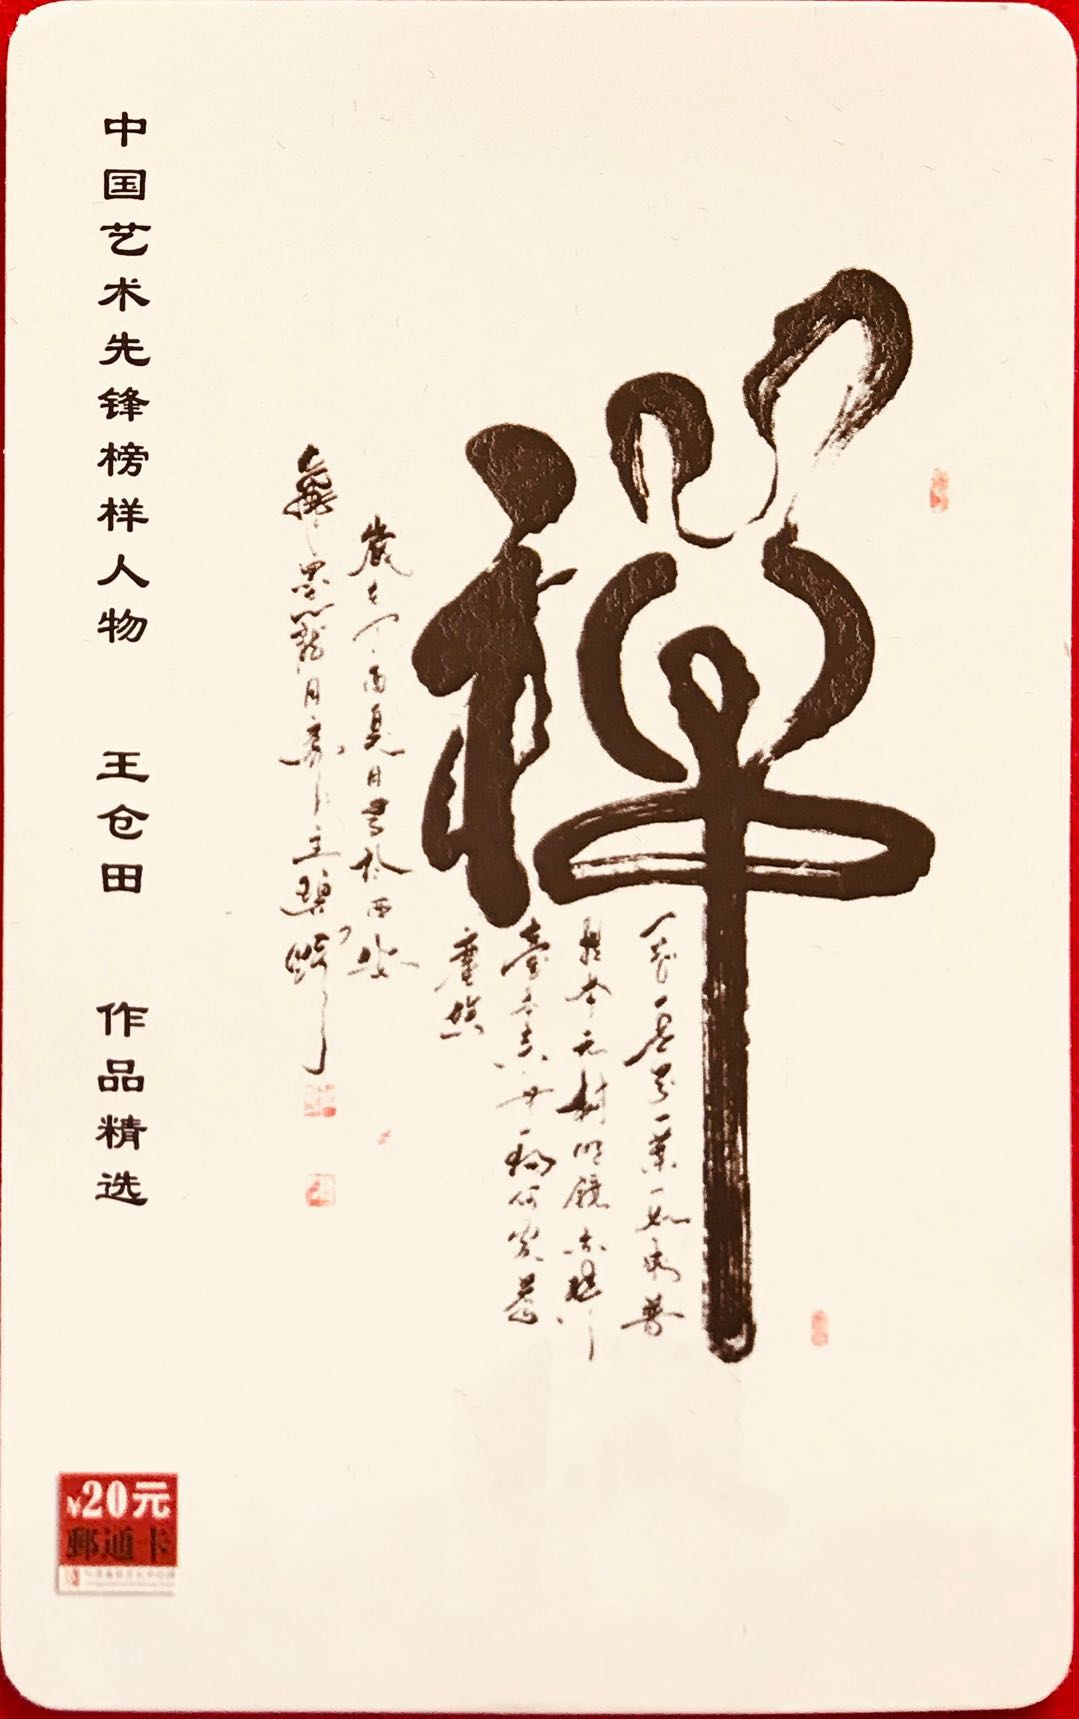 中国艺术先锋榜样人物 王仓田 作品精选
禅
一花一世界一葉一如来菩
提本无树明镜亦非
臺本来无一物何處惹
塵埃
歲在丁酉夏月书於西安
¥20元
郵通卡